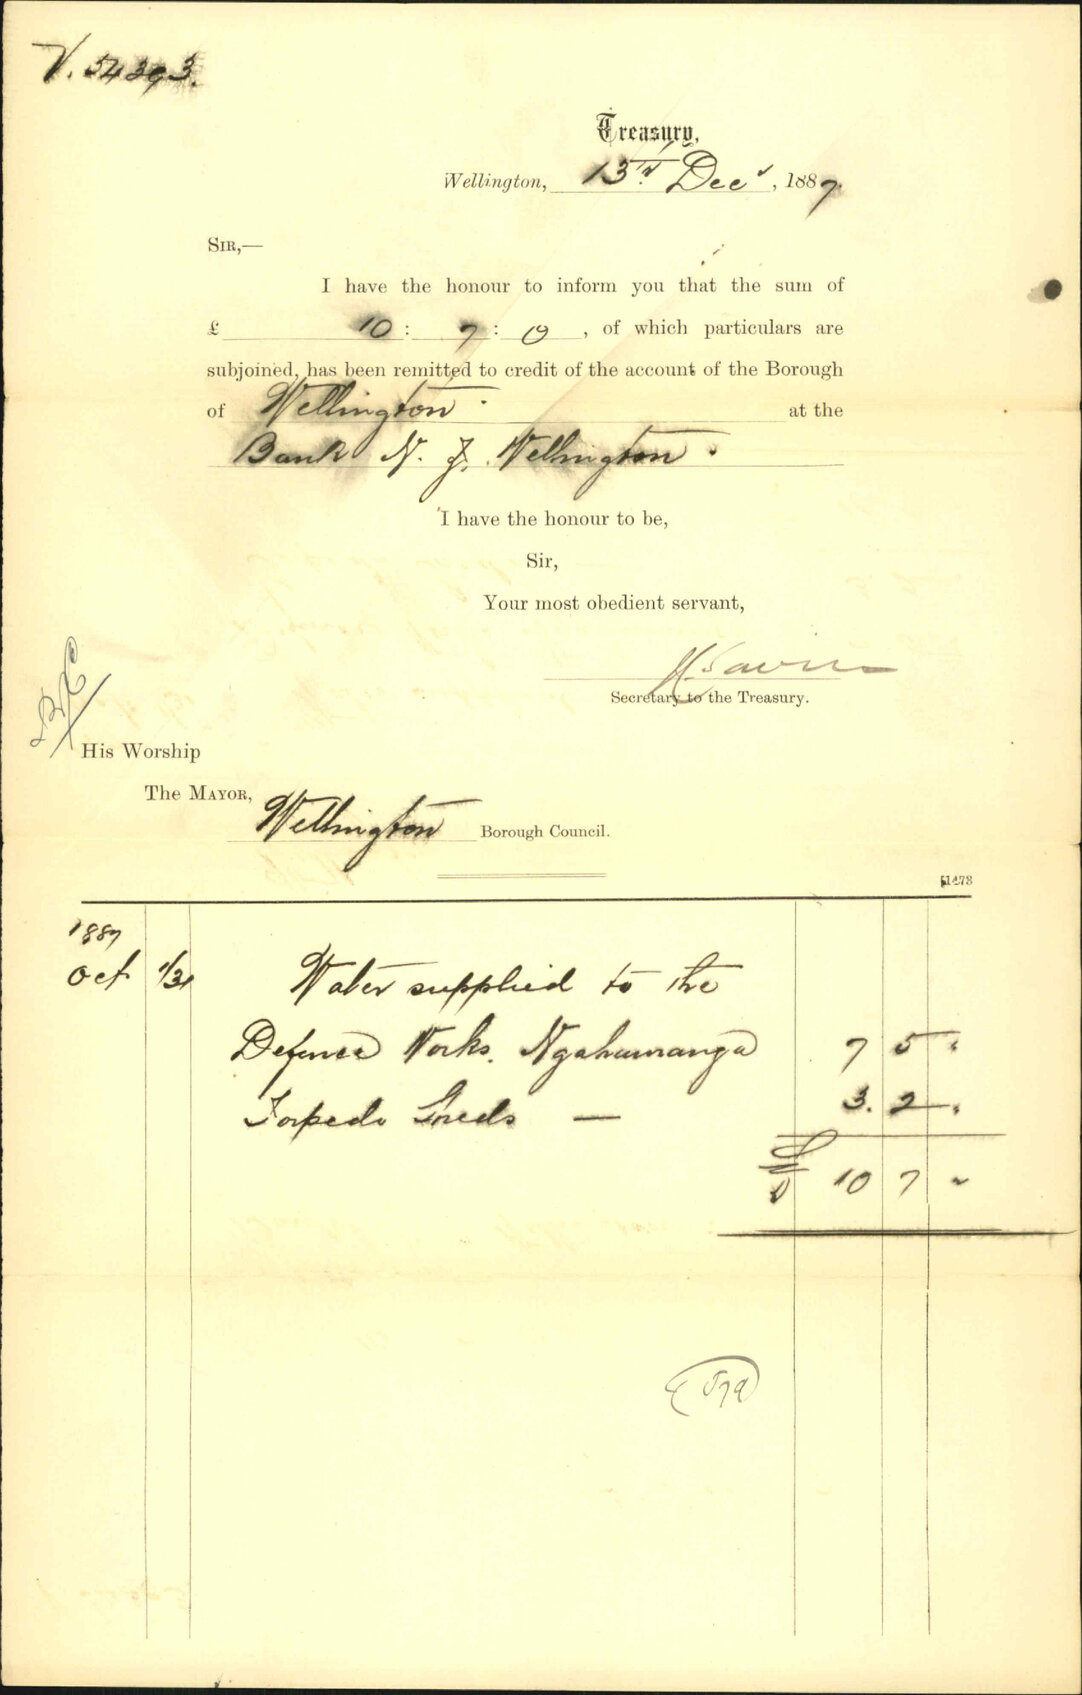 V. 54393.
Treasury,
Wellington, 13th Decr, 1887.
SIR,—
I have the honour to inform you that the sum of
£ 10 : 7 : 0 , of which particulars are
subjoined, has been remitted to credit of the account of the Borough
of Wellington at the
Bank N. Z. Wellington.
I have the honour to be,
Sir,
Your most obedient servant,
Secretary to the Treasury.
His Worship
The MAYOR,
Wellington Borough Council.
1887
Oct 1/31 Water supplied to the
Defence Works. Ngahauranga 7 5 "
Torpedo 3. 2 "
£ 10 7 "